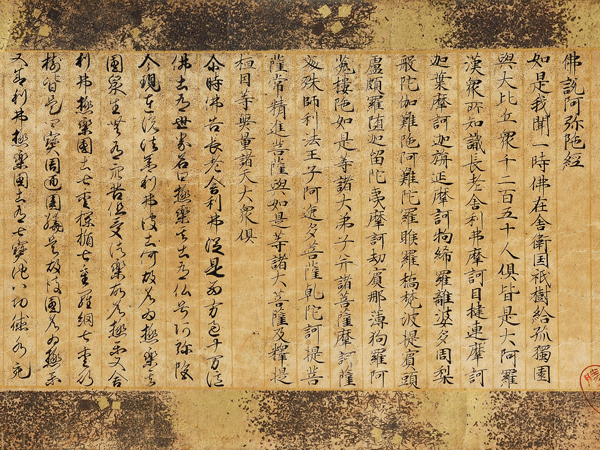 佛說阿弥陁經
如是我聞一時佛在舍衛国祇樹給孤獨園
與大比丘衆千二百五十人俱皆是大阿羅
漢衆所知識長老舍利弗摩訶目揵連摩訶
迦葉摩訶迦旃延摩訶拘絺羅離婆多周梨
般陀伽難陁阿難陁羅睺羅憍梵波提賓頭
盧頗羅堕迦留陀夷摩訶劫賓那薄拘羅阿
㝹樓陁如是等諸大弟子并諸菩薩摩訶薩
文殊師利法王子阿逸多菩薩乾陀訶提菩
薩常精進菩薩與如是等諸大菩薩及釋提
桓因等無量諸天大衆俱
尒時佛告長老舍利弗従是西方過十万億
佛土有世界名曰極樂其土有仏号阿弥陁
今現在說法舍利弗彼土何故名為極樂其
國衆生無有衆苦但受諸樂故名極楽又舍
利弗極樂國土七重欄楯七重羅網七重行
樹皆是四寳周迊圍繞是故彼國名為極樂
又舍利弗極樂國土有七寳池八功徳水充